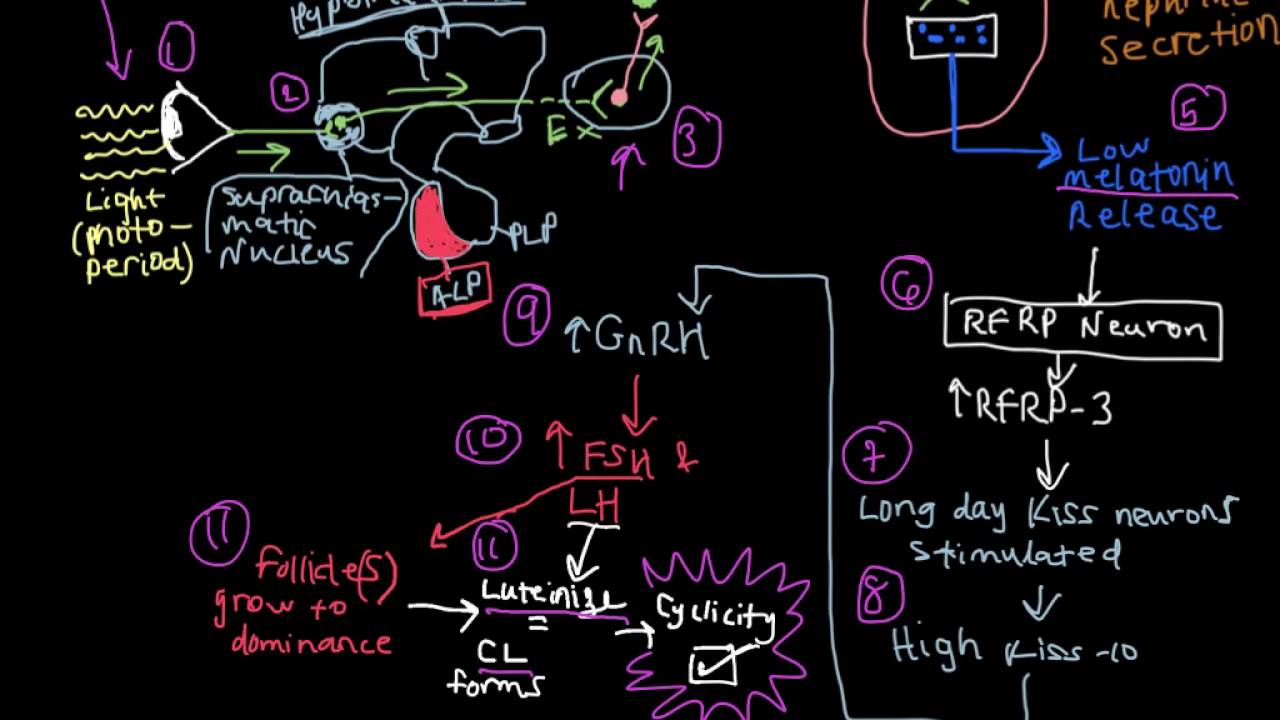 1
2
Ex
3
Light
(photo-
period)
Suprachias-
matic
Nucleus
PLP
A-LP
secretion
5
Low
melatonin
Release
6
RFRP Neuron
↑RFRP-3
7
Long day Kiss neurons
stimulated
8
High Kiss-10
9
↑GnRH
10
↑ FSH &
LH
11
Follicle(s)
grow to
dominance
11
Luteinize
=
CL
forms
Cyclicity